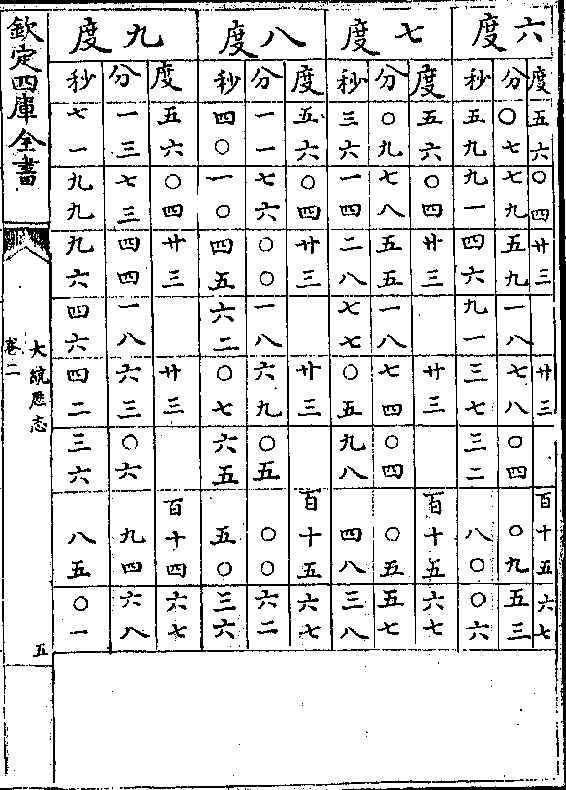 六度 七度 八度 九度
度 分 秒 度 分 秒 度 分 秒 度 分 秒
五六 〇七 五九 五六 〇九 三六 五六 一一 四〇 五六 一三 七一
〇四 七九 九一 〇四 七八 一四 〇四 七六 一〇 〇四 七三 九九
廿三 五九 四六 廿三 五五 二八 廿三 〇〇 四五 廿三 四四 九六
一八 九一 一八 七七 一八 六二 一八 四六
廿三 七八 三七 廿三 七四 〇五 廿三 六九 〇七 廿三 六三 四二
〇四 三二 〇四 九八 〇五 六五 〇六 三六
百十五 〇九 八〇 百十五 〇五 四八 百十五 〇〇 五〇 百十四 九四 八五
六七 五三 〇六 六七 五七 三八 六七 六二 三六 六七 六八 〇一
欽定四庫全書
大統歷志
卷二
五